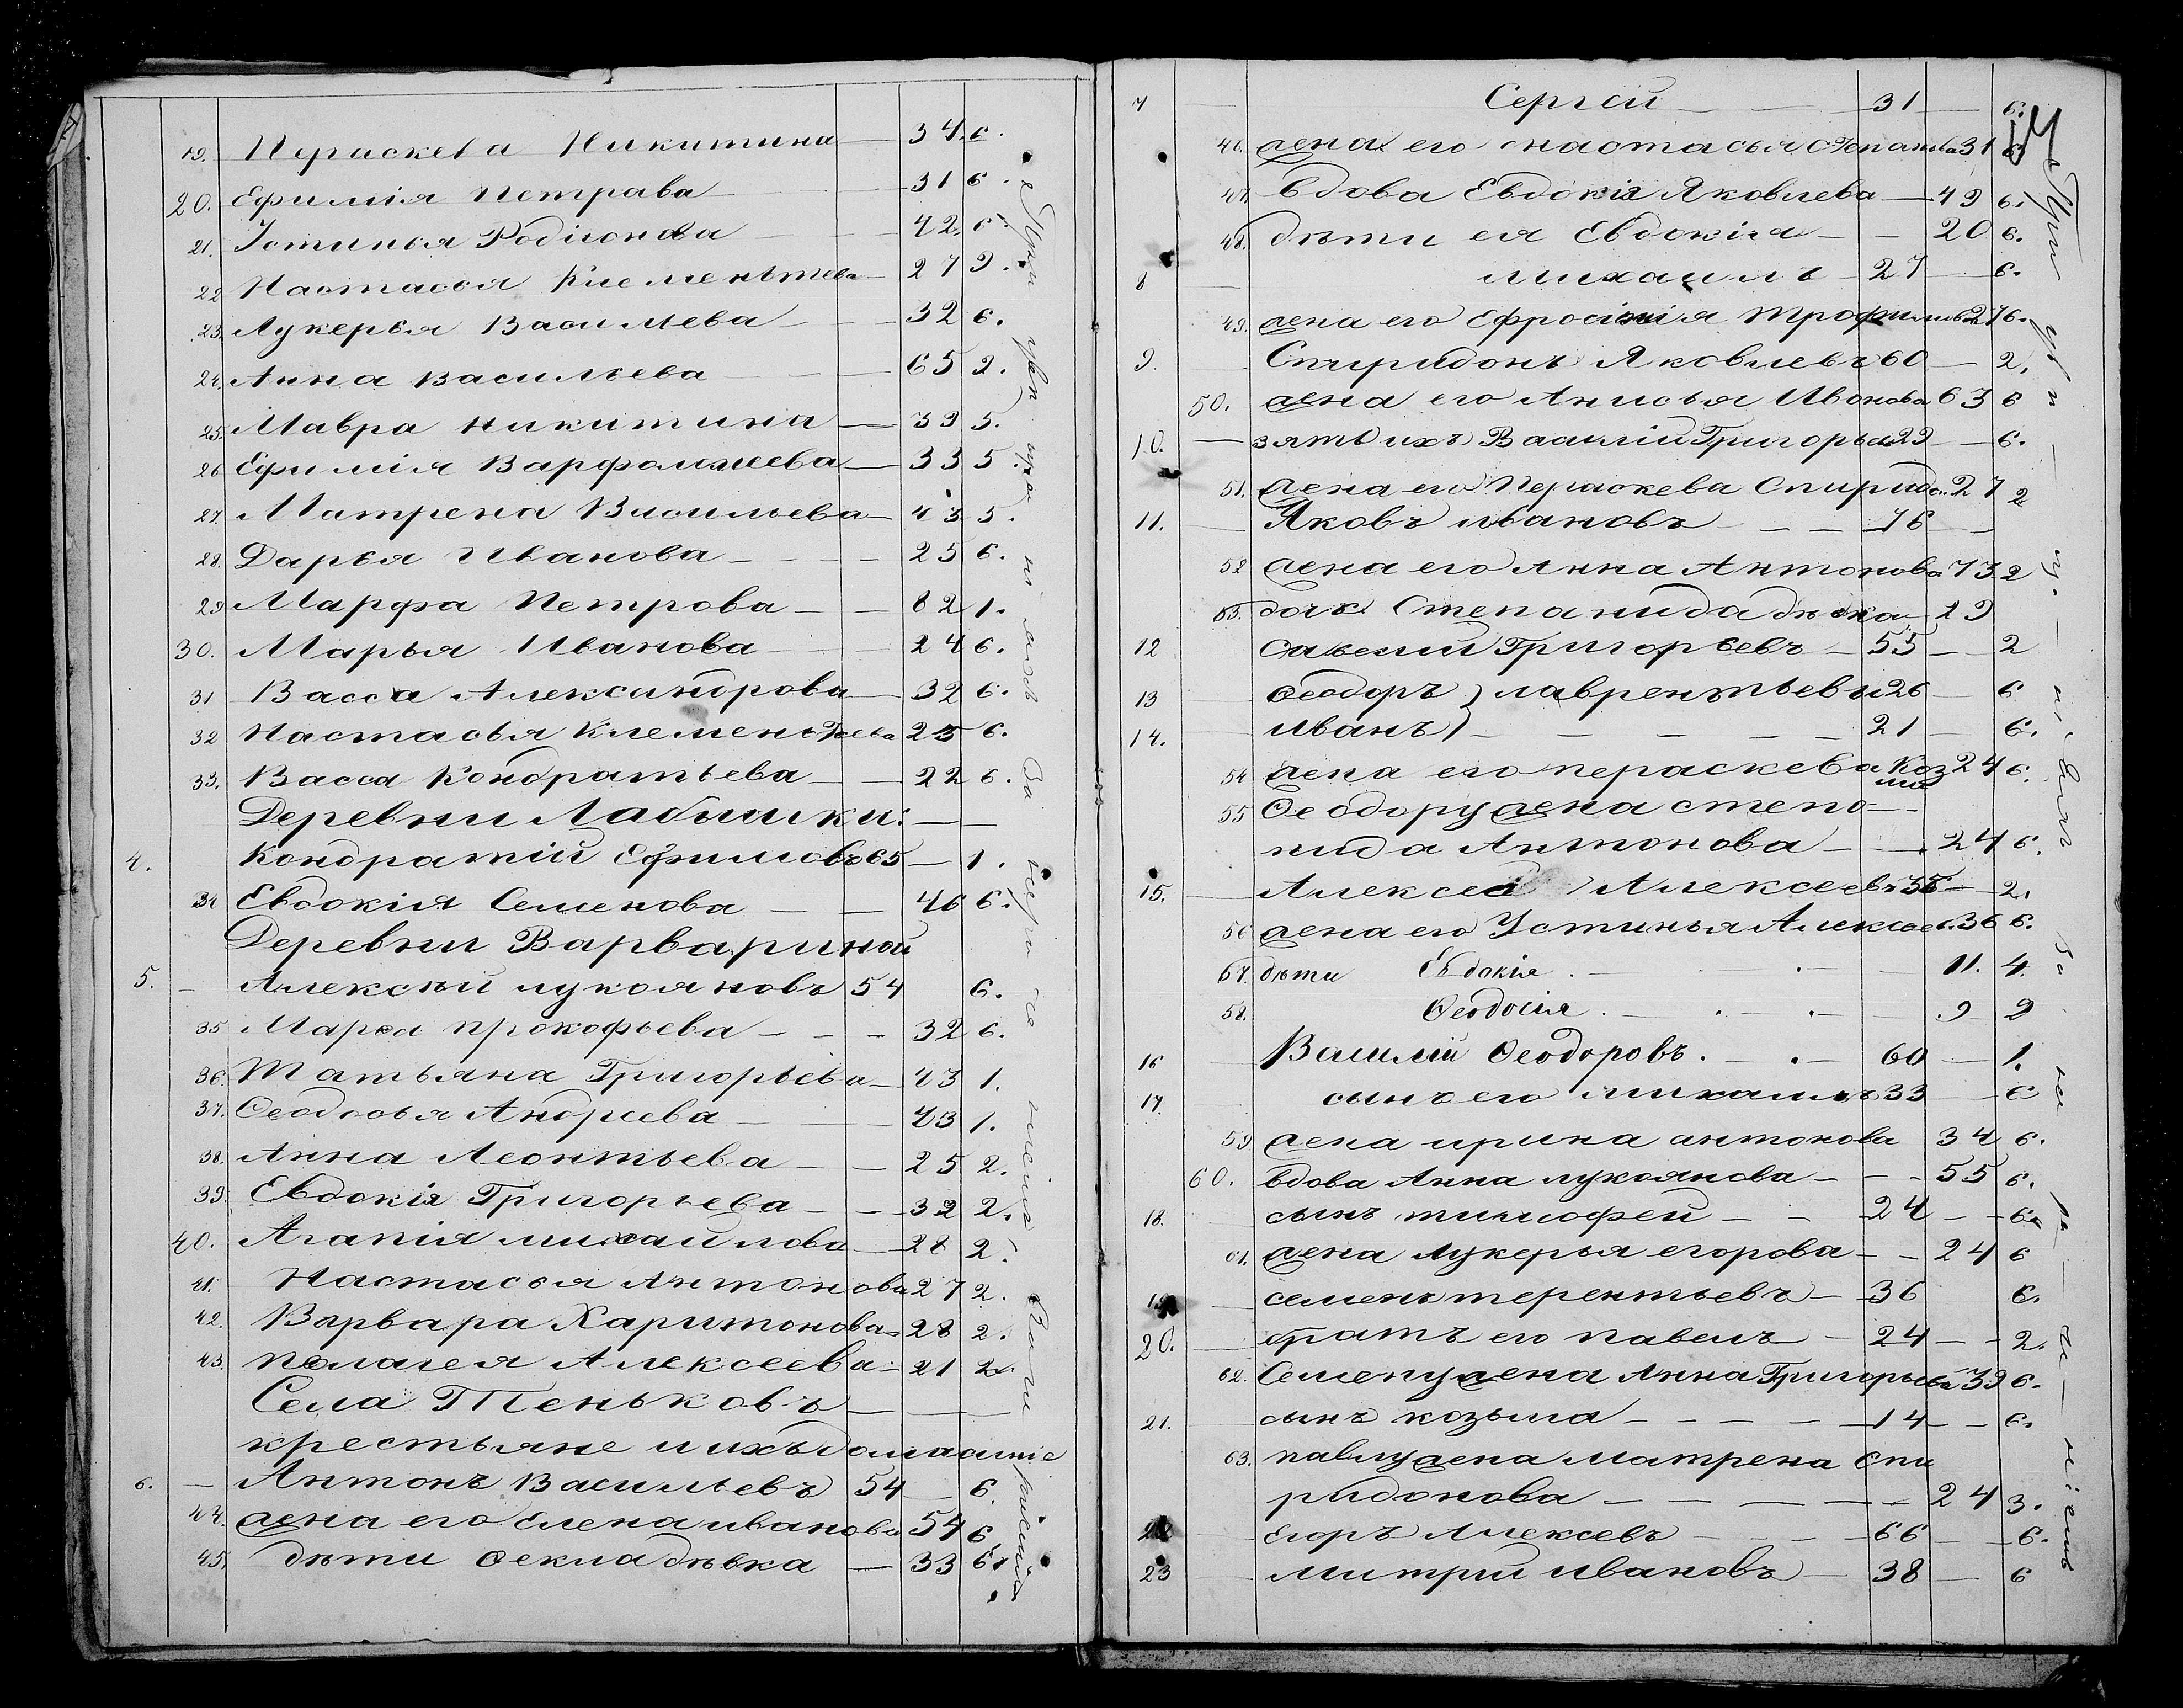 19. Пераскева Никитина — 34. 6.
20. Ефимія Петрава — 31 6.
21. Істинья Родіонова — 42. 6.
22 Настасья Клеменьтева — 27 9.
23. Лукерья Васильева — 32 6.
24. Анна Васильева — 65 2.
25. Мавра Никитина — 39 5.
26 Ефимія Варфоломеева — 33 5.
27. Матрена Васильева — 43 5.
28. Дарья Иванова — 25 6.
29. Марфа Петрова — 62 1.
30. Марья Иванова — 24 6.
31 Васса Александрова — 32 6.
32 Настасья Клеменьтьева 25 6.
33. Васса Кондратьева — 22 6.
Деревни Лабышки:
4. Кондратій Ефимовъ 65 — 1.
34 Евдокія Семенова — 46 6.
Деревни Варвариной
5. — Алексѣй Лукояновъ 54 6.
35 Марья Прокофьева — 32 6.
36. Татьяна Григорьева — 43 1.
37. Ѳеодосья Андреева — 43 1.
38. Анна Леонтьева — 25 2.
39. Евдокія Григорьева — 32 2.
40. Агапія Михайлова — 28 2.
41. Настасья Антонова 27 2.
42. Варвара Харитонова 28 2.
43. Пелагея Алексеева 21 2.
Села Теньковъ
крестьяне и ихъ домашніе
6. — Антонъ Васильевъ 54 — 6.
44. жена его Елена Иванова 54 6
45. дѣти Ѳекла дѣвка — 33 6.
7 — Сергей — 31 — 6.
46. жена его Настасья Степанова 31 6
47. Вдова Евдокія Яковлева — 49 6.
48. дѣти ея Евдокія — 20 6.
8 — Михаилъ — 27 — 6.
49. жена его Ефросинія Трофимова 27 6.
9. Спиридонъ Яковлевъ 60 — 2.
50. жена его Анисья Иванова 63 6
10. — зять ихъ Василій Григорьев 29 — 6.
51. жена его Пераскева Спиридо. 27 2
11. — Яковъ Ивановъ — 76 —
52 жена его Анна Антонова 73 2
53. дочь Степанида дѣвка — 29
12 Савелий Григорьевъ — 55 — 2
13 Ѳеодоръ) Лаврентьевы 26 — 6
14. Иванъ) — 21 — 6.
54 жена его Пераскева Коз 24 6.
55 Ѳеодору жена Степа=
нида Антонова — 24 6.
15. — Алексей Алексеевъ 35 — 2.
56 жена его Устинья Алексеев. 36 6.
57. дѣти Евдокія — 11. 4.
58. Ѳеодосія — 9 2
16 Василій Ѳеодоровъ. — 60 — 1.
17. сынъ его Михаилъ 33 — 6
59 жена Ирина Антонова 34 6.
60. вдова Анна Лукоянова — 55 6.
18. сынъ Тимофей — 24 — 6.
61. жена Лукерья Егорова — 24 6
19. — Семенъ Терентьевъ — 36 6.
20. — братъ его Павелъ — 24 — 2.
62. Семену жена Анна Григорьева 39 6.
21. сынъ Козьма — 14 — 6.
63. Павлу жена Матрена Спи
ридонова — 24 3.
22 Егоръ Алексевъ — 66 — 6.
23 Митрій Ивановъ — 38 — 6